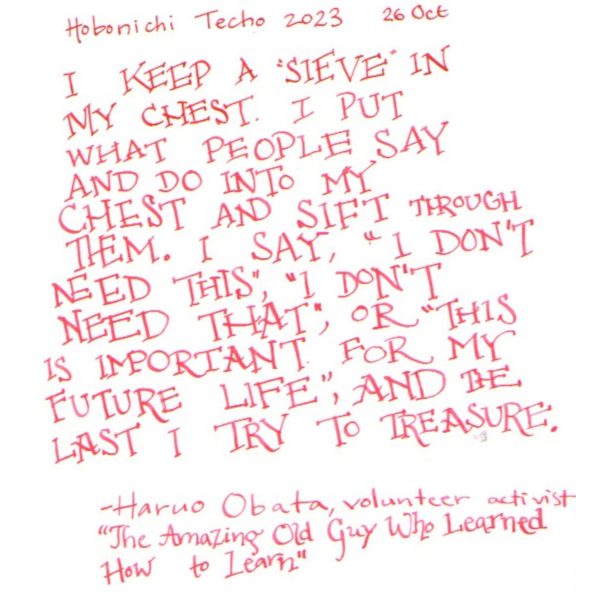 Hobonichi Techo 2023 26 Oct
I KEEP A "SIEVE" IN
MY CHEST. I PUT
WHAT PEOPLE SAY
AND DO INTO MY
CHEST AND SIFT THROUGH
THEM. I SAY, "I DON'T
NEED THIS", "I DON'T
NEED THAT", OR "THIS
IS IMPORTANT FOR MY
FUTURE LIFE", AND THE
LAST I TRY TO TREASURE.
-Haruo Obata, volunteer activist
"The Amazing Old Guy Who Learned
How to Learn"